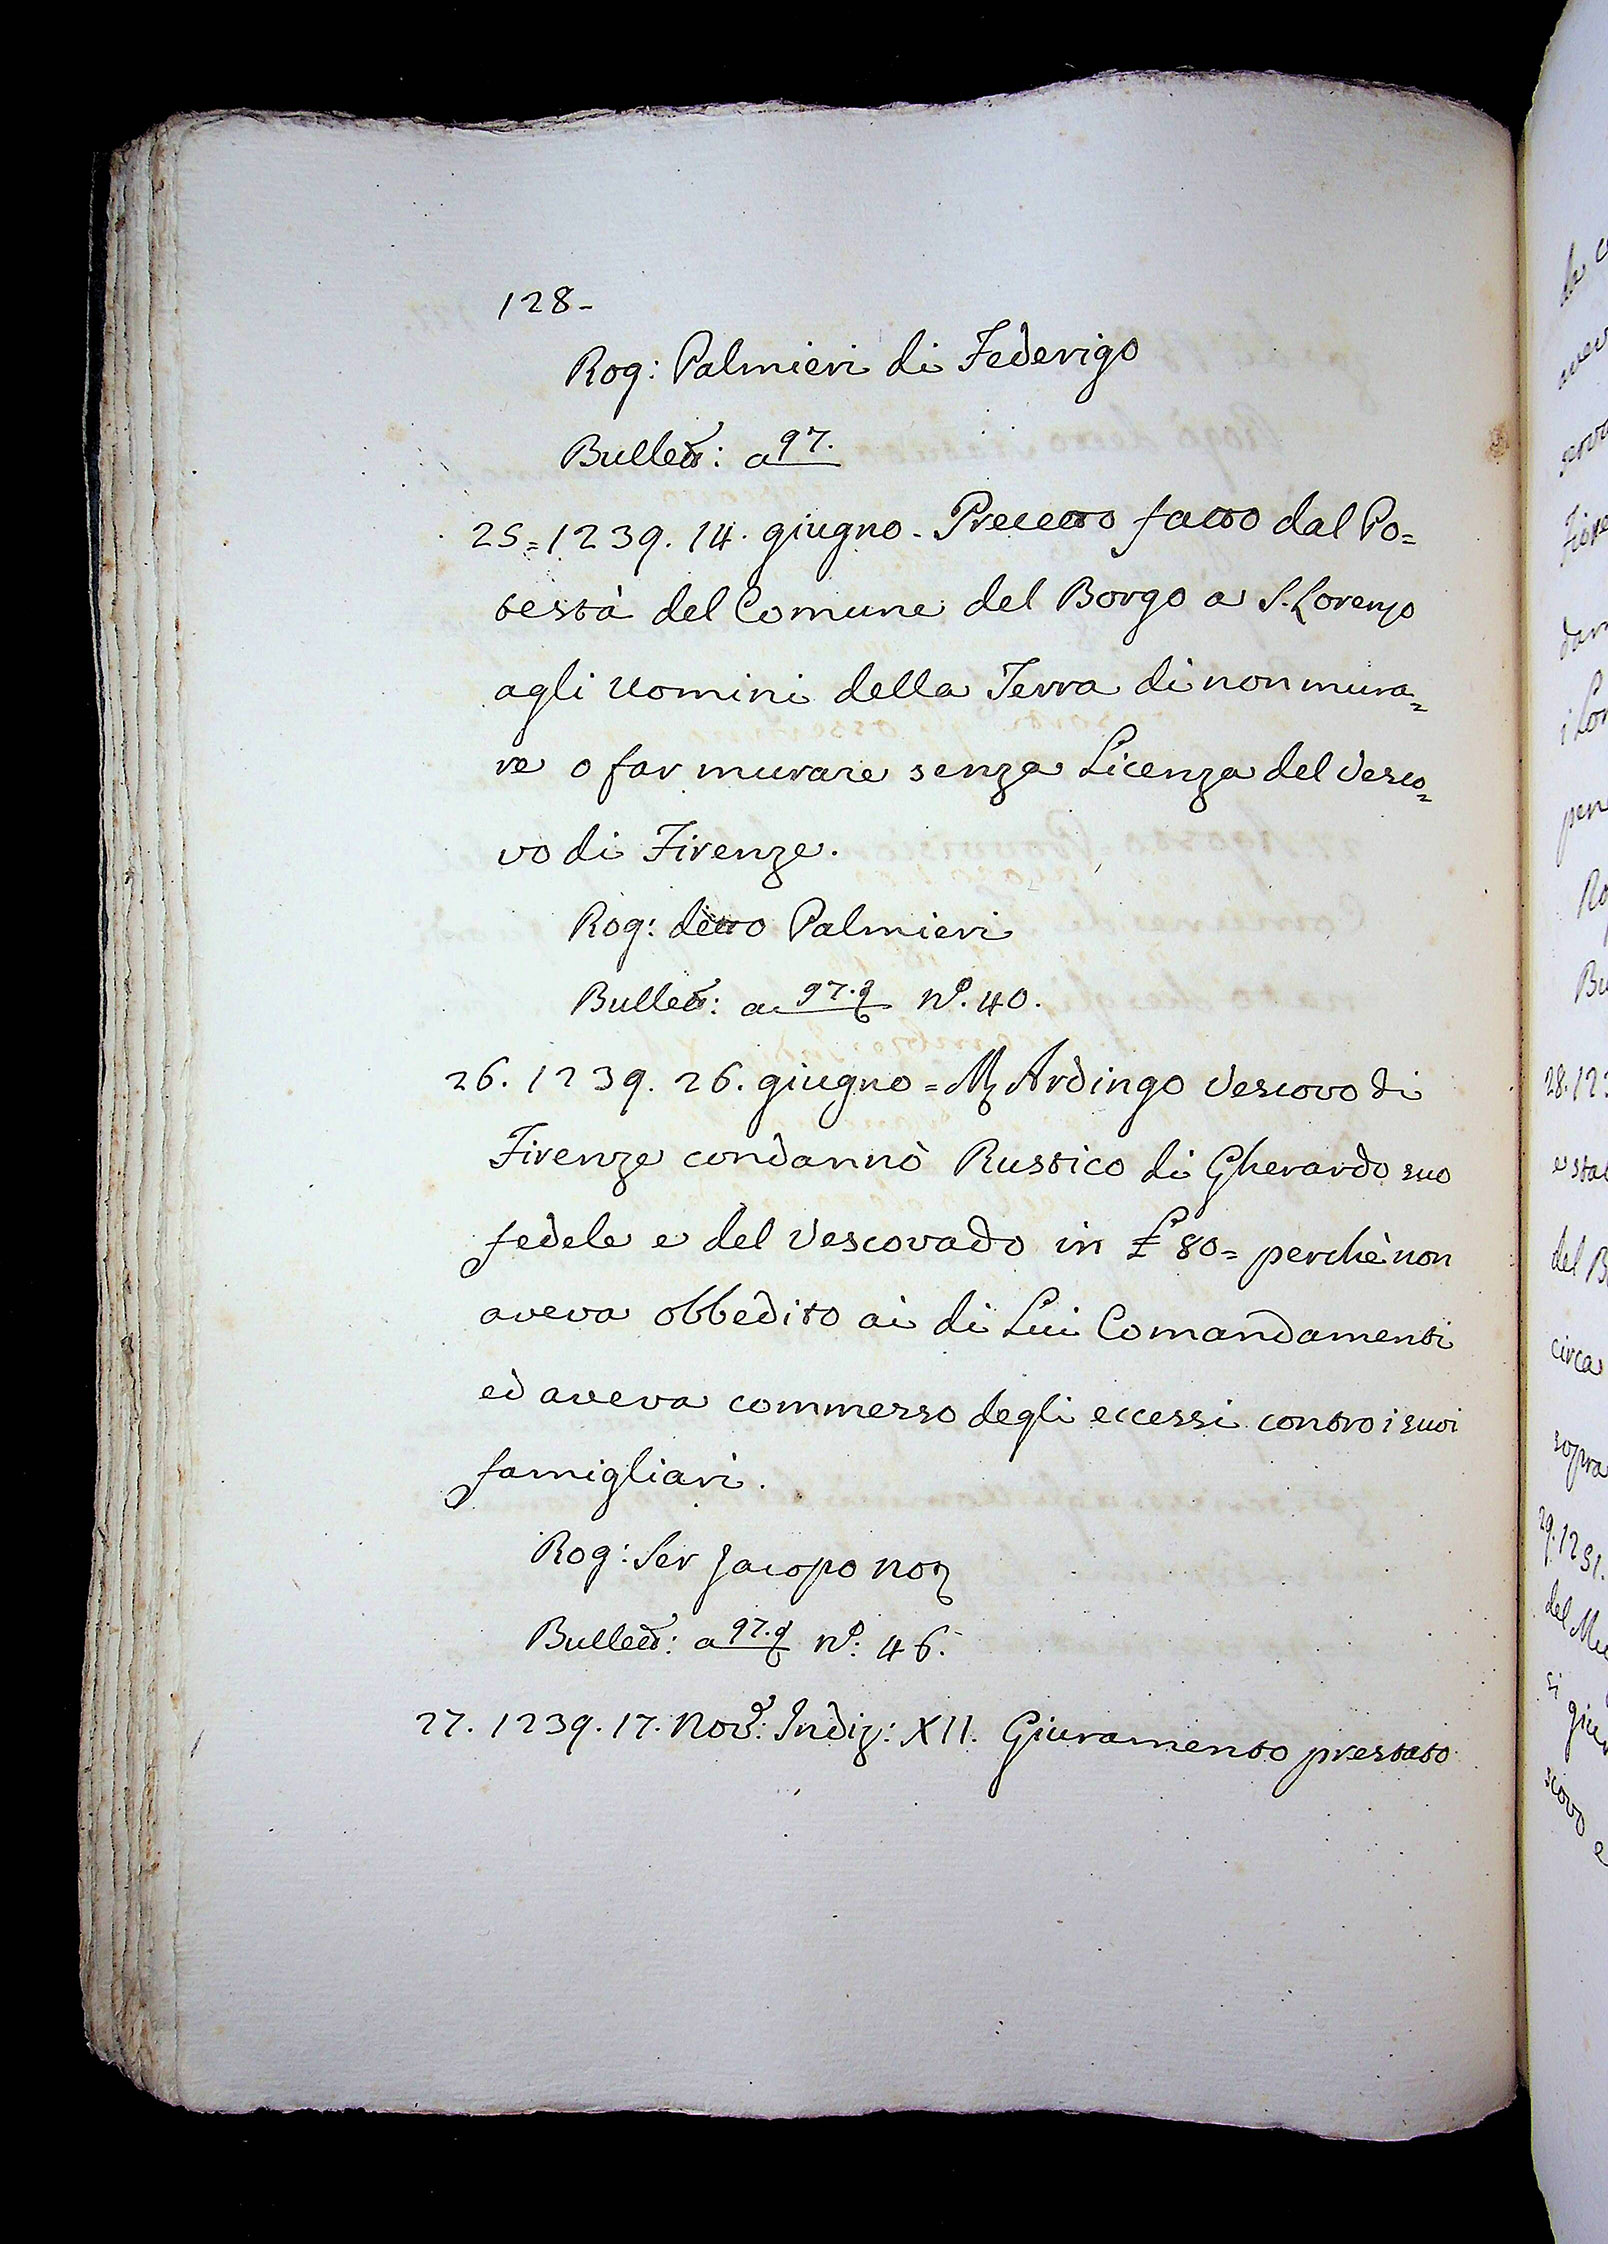 128-
Rog: Palmieri di Federigo
Bullett: a 97.
25=1239. 14. giugno. Precetto fatto dal Po=
testà del Comune del Borgo a S. Lorenzo
agli Uomini della Terra di non mura=
re o far murare senza Licenza del Vesco=
vo di Firenze.
Rog: detto Palmieri
Bullett: a 97. N.º 40.
26. 1239. 26. giugno = Ardingo Vescovo di
Firenze condannò Rustico di Gherardo suo
fedele e del Vescovado in £ 80= perchè non
aveva obbedito ai di Lui Comandamenti
ed aveva commesso degli eccessi contro i suoi
famigliari.
Rog: Ser Jacopo Not
Bullett: a 97. N.º 46.
27. 1239. 17. Nov: Indiz: XII. Giuramento prestato
28. 123
e stat
del B
circa
sopra
29. 1251.
del Mu
si giur
scovo e